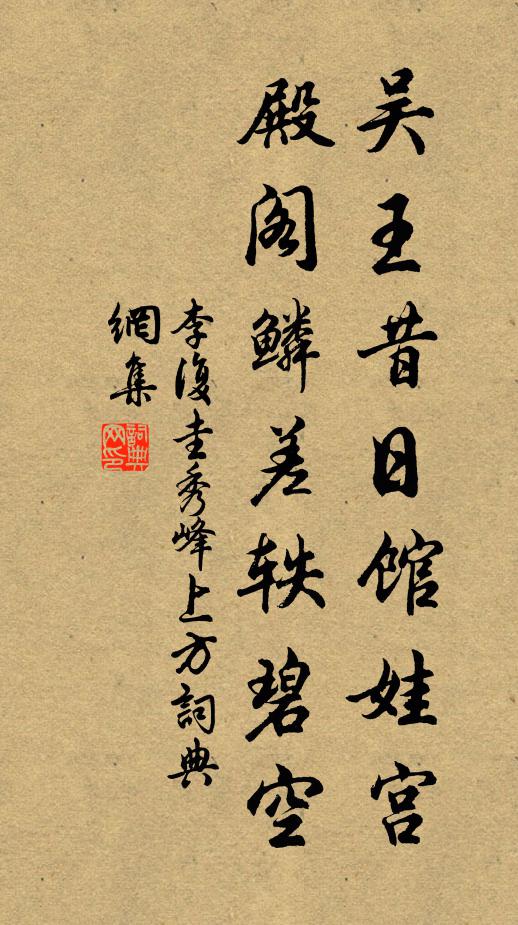 吴王昔日馆娃宫
殿阁鳞差轶碧空
李復圭秀峰上方詞典
網集
詞典
网印